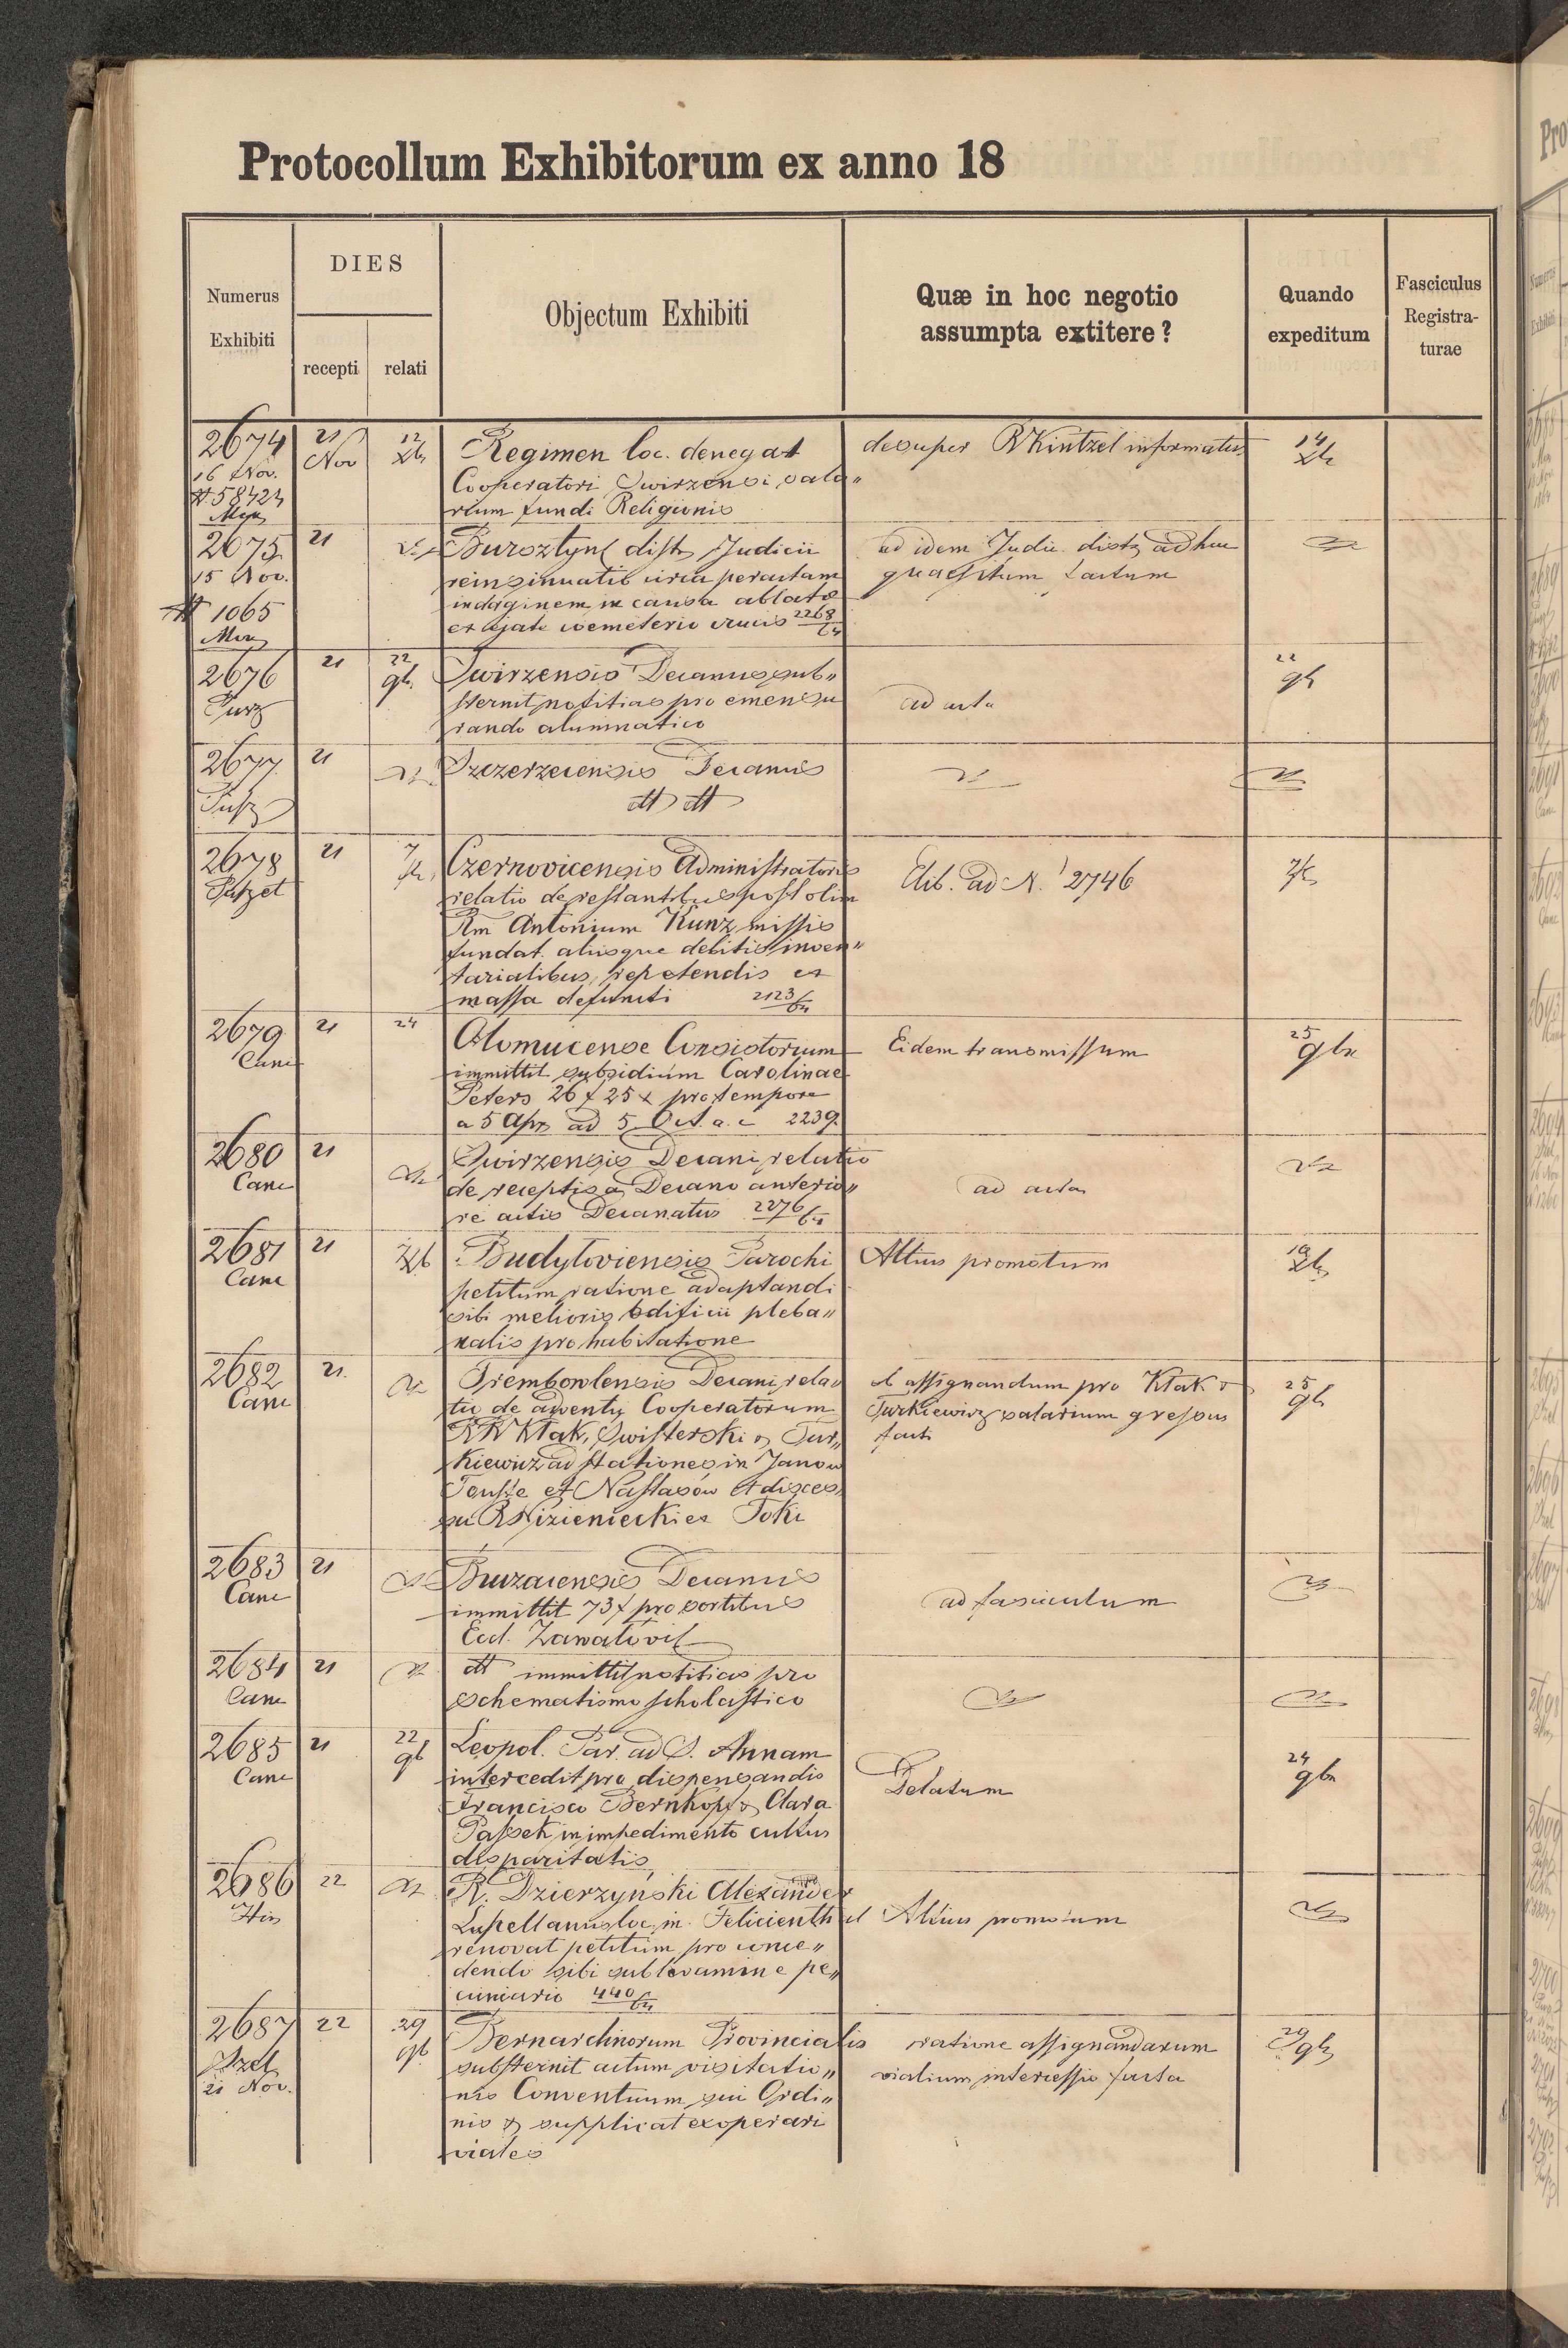 Protocollum Exhibitorum ex anno 18
Numerus Exhibiti
DIES
recepti
relati
Objectum Exhibiti
Quæ in hoc negotio
assumpta extitere?
Quando
expeditum
Fasciculus
Registra-
turae
2674
16 Nov.
58424
21
Nov
12
Regimen loc. denegat
Cooperatori Swirzensi sala„
rium fundi Religionis
desuper R Kintzel informatus
14
2675
15 Nov.
1065
21
Bursztyn distr Judicii
reinsinuatio circa peractam
indaginem in causa ablatae
ex agate coemeterio crucis 2268/64
ad idem Judic. distr adhuc
quaesitum factum
2676
21
22
9b.
Swirzensis Decanus sub„
sternit notitias pro emensu
rando alumnatico
ad acta
22
9b
2677
21
Szczerzecensis Decanus
dtt dtt
2678
21
7
Czernovicensis Administratoris
relatio de restantibus post olim
Rm Antonium Kunz missis
fundat. aliisque debitis inven„
tarialibus, repetendis ex
massa defuncti 2123/64
Elib. ad N. 2746
2679
Canc
21
24
Olomucense Consistorium
immittit subsidium Carolinae
Peters 26 f 25 x pro tempore
a 5 Apr ad 5 Oct. a. c 2239
Eidem transmissum
25
9br
2680
Canc
21
Swirzensis Decani relatio
de receptis a Decano anterio„
re actis Decanatus 2276/64
ad acta
2681
Canc
21
Budyloviensis Parochi
petitum ratione adaptandi
sibi melioris edificii pleba„
nalis pro habitatione
Altius promotum
19
2682
Canc
21.
Trembowlensis Decani rela„
tio de adventu Cooperatorum
RR Ktak, Swisterski & Tur„
kiewicz ad stationes in Janow
Touste et Nastasów et disces„
su R Nizieniecki ex Toki
ob assignandum pro Ktak &
Turkiewicz salarium gressus
facti
25
9b
2683
Canc
21
Buczacensis Decanus
immittit 73 f pro sortibus
Eccl. Zawatovil
ad fasciculum
2684
Canc
21
dtt immittit notitias pro
schematismo scholastico
2685
Canc
21
22
9b
Leopol. Par. ad S. Annam
intercedit pro dispensandis
Francisco Bernkopf & Clara
Passek in impedimento cultus
disparitatis
Delatum
24
9br
2686
22
R. Dzierzyński Alexander
Capellanus loc. in Felicienthal
renovat petitum pro conce„
dendo sibi sublevamine pe„
cuniario 440/64
Altius promotum
2687
21 Nov.
22
29
9b
Bernardinorum Provincialis
substernit actum visitatio„
nis Conventuum sui Ordi„
nis & supplicat exoperari
viales
ratione assignandarum
vialium intercessio facta
29
9b